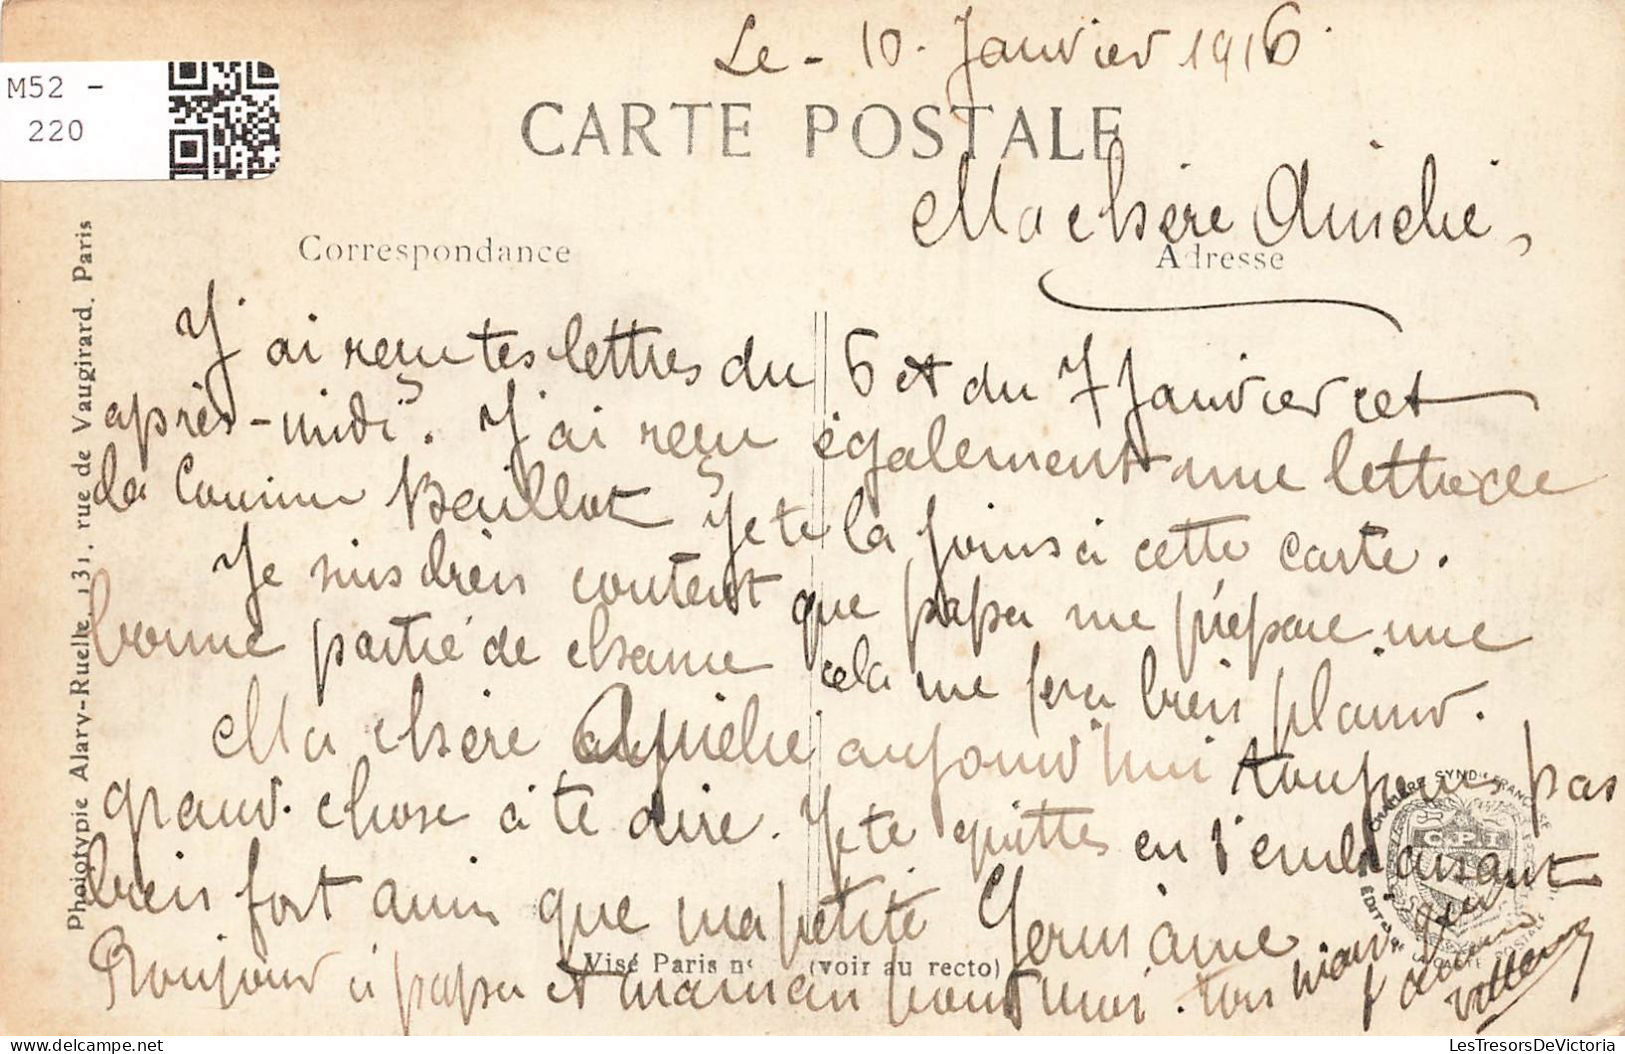 M52 -
220
Le - 10 - Janvier 1916
CARTE POSTALE
Ma chère Amélie,
Correspondance
Adresse
J'ai reçu tes lettres du 6 et du 7 Janvier cet
après-midi. J'ai reçu également une lettre de
la Cousine Baillot Je te la joins à cette carte.
Je suis bien content que papa me prépare une
bonne partie de chasse cela me fera bien plaisir.
Ma chère Amélie aujourd'hui pas
grand chose à te dire. Je te quitte en t'embrassant
bien fort ainsi que ma petite Germaine
Bonjour à papa et maman pour moi. ton mari
qui
t'aime
Phototypie Alary-Ruelle, 131, rue de Vaugirard, Paris
Visé Paris n° (voir au recto)
C.P.I
LesTresorsDeVictoria - delcampe.net